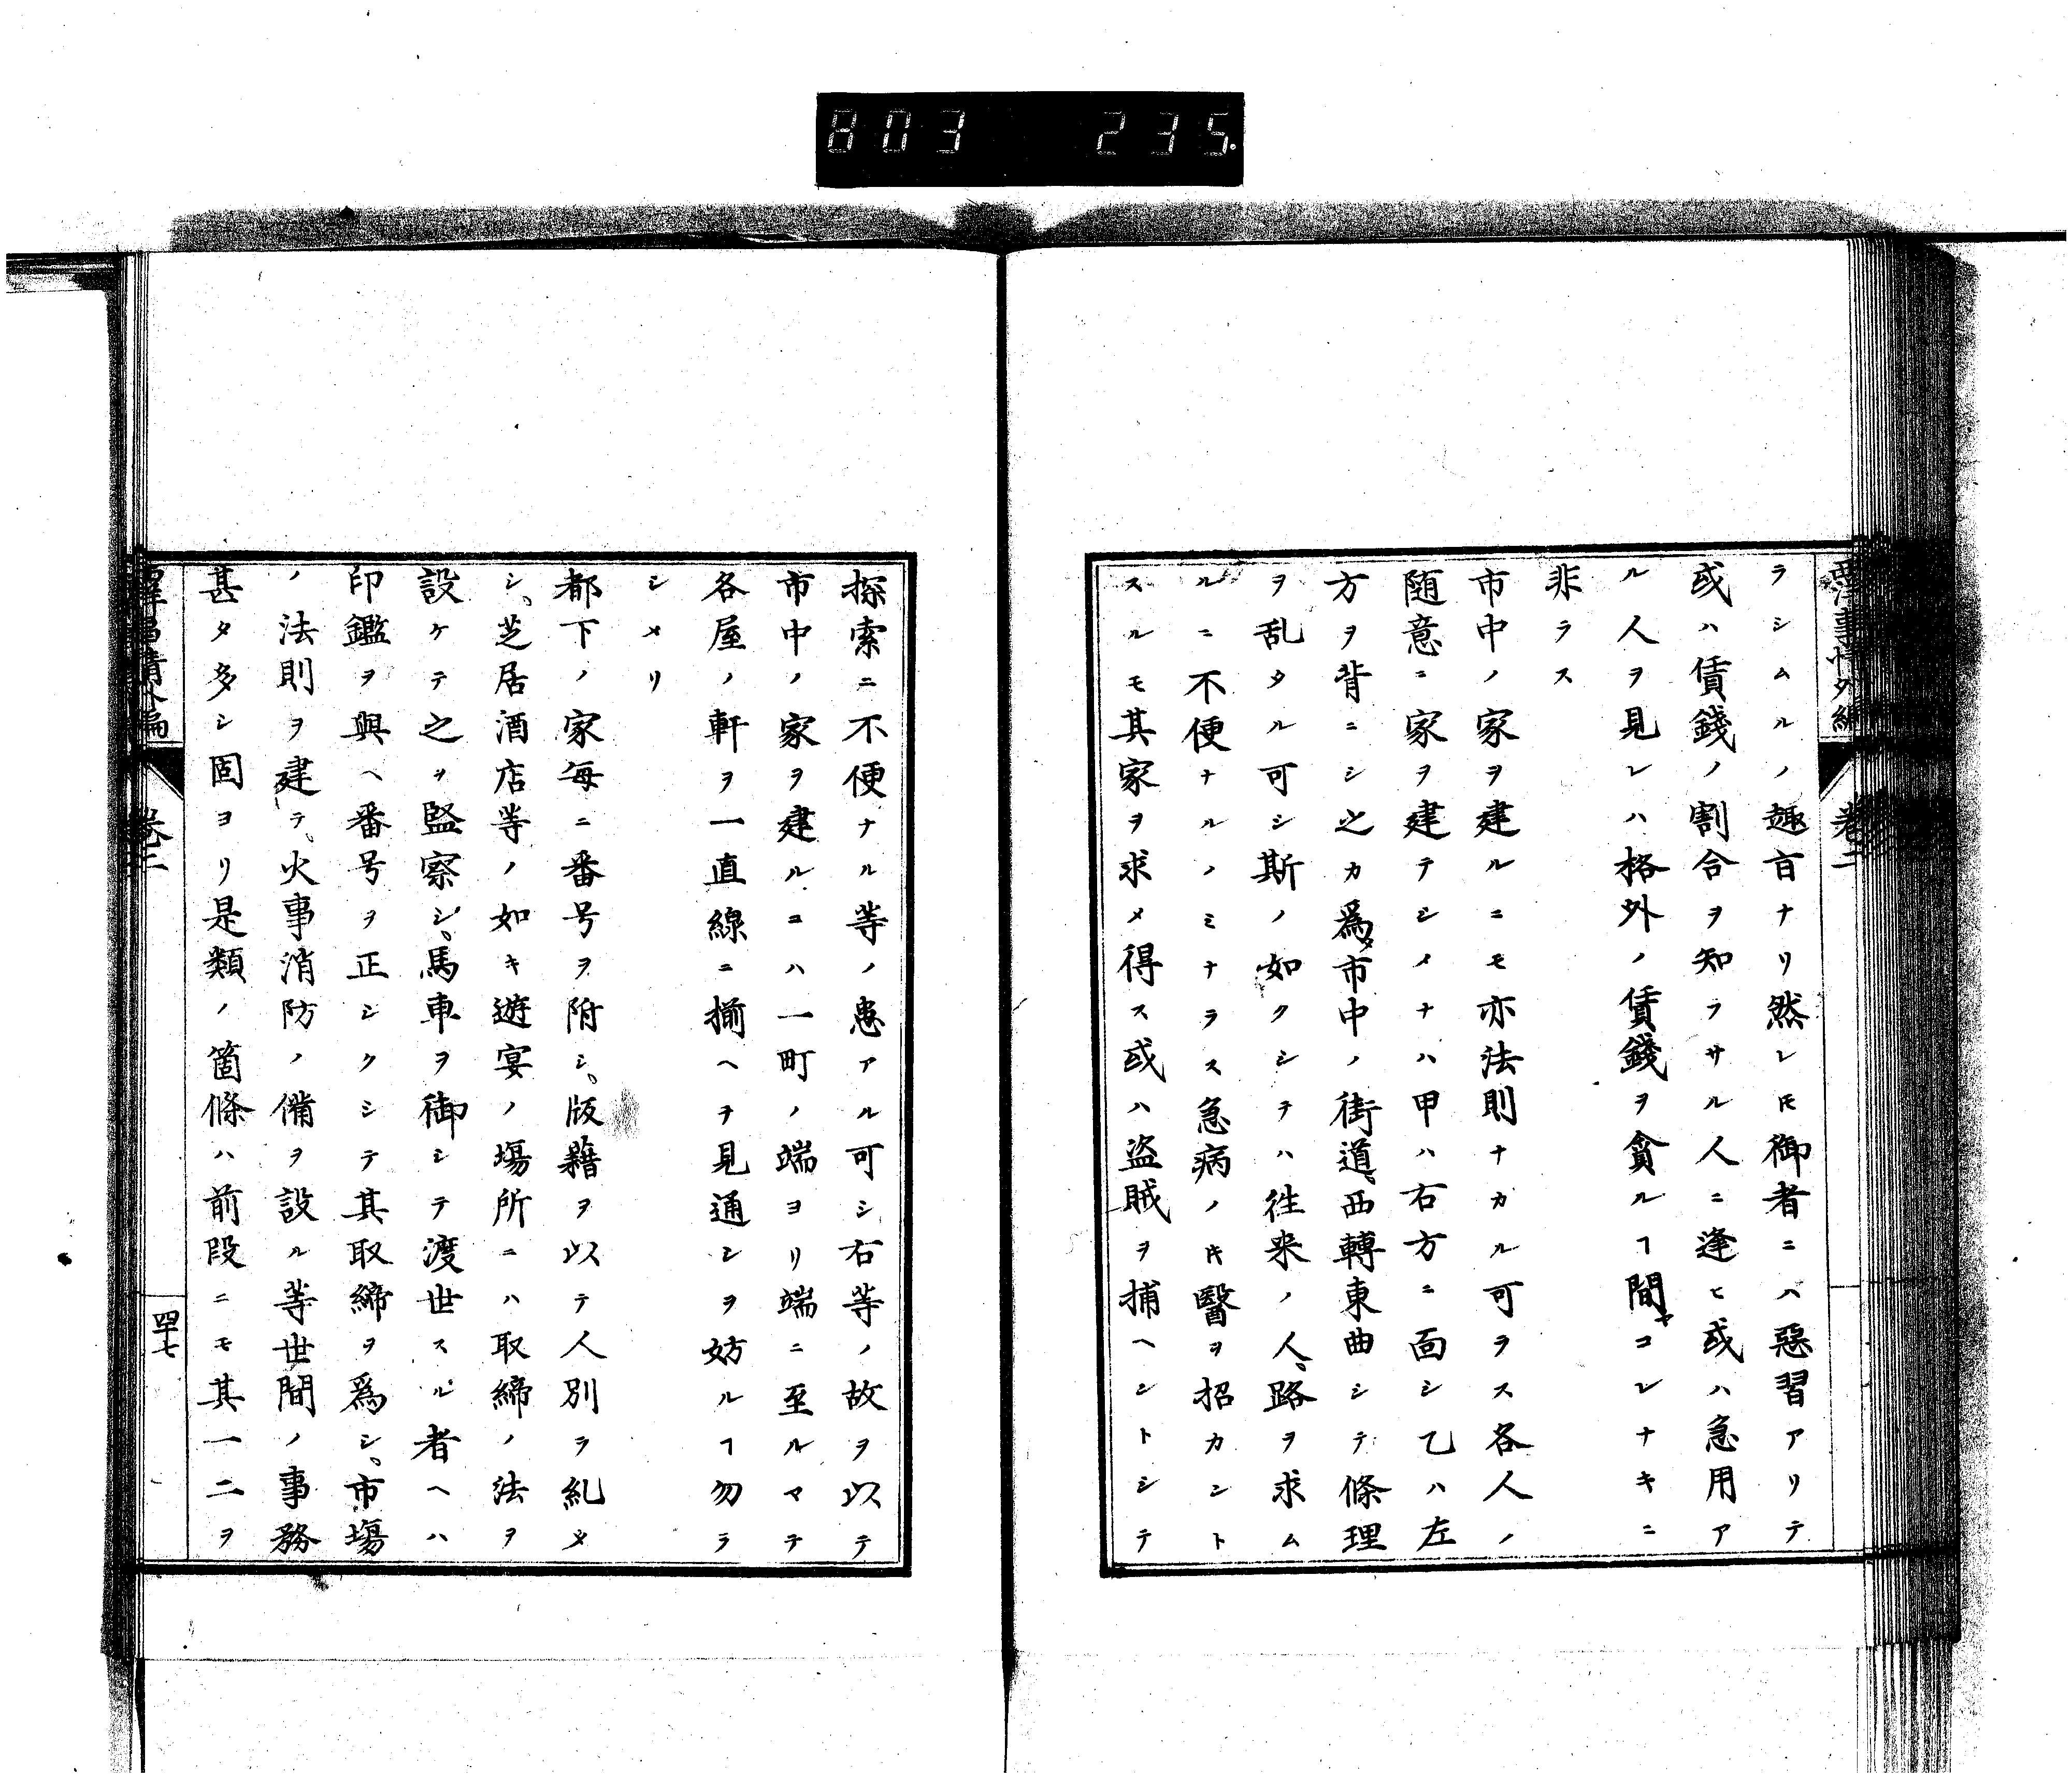 803 235.
西洋事情外編
卷二
ラシムルノ趣旨ナリ然レ𪜈御者ニハ惡習アリテ
或ハ賃錢ノ割合ヲ知ラサル人ニ逢ヒ或ハ急用ア
ル人ヲ見レハ格外ノ賃錢ヲ貪ルヿ間〻コレナキニ
非ラス
市中ノ家ヲ建ルニモ亦法則ナカル可ラス各人ノ
随意ニ家ヲ建テシメナハ甲ハ右方ニ面シ乙ハ左
方ヲ背ニシ之カ爲メ市中ノ街道、西轉東曲シテ條理
ヲ乱タル可シ斯ノ如クシテハ徃來ノ人、路ヲ求ム
ルニ不便ナルノミナラス急病ノ𪜈醫ヲ招カント
スルモ其家ヲ求メ得ス或ハ盗賊ヲ捕ヘントシテ
探索ニ不便ナル等ノ患アル可シ右等ノ故ヲ以テ
市中ノ家ヲ建ルニハ一町ノ端ヨリ端ニ至ルマテ
各屋ノ軒ヲ一直線ニ揃ヘテ見通シヲ妨ルヿ勿ラ
シメリ
都下ノ家毎ニ番号ヲ附シ、版籍ヲ以テ人別ヲ糺メ
シ、芝居酒店等ノ如キ遊宴ノ場所ニハ取締ノ法ヲ
設ケテ之ヲ監察シ、馬車ヲ御シテ渡世スル者ヘハ
印鑑ヲ與ヘ番号ヲ正シクシテ其取締ヲ爲シ、市場
ノ法則ヲ建テ、火事消防ノ備ヲ設ル等世間ノ事務
甚タ多シ固ヨリ是類ノ箇條ハ前段ニモ其一二ヲ
西洋事情外編
卷二
四十七